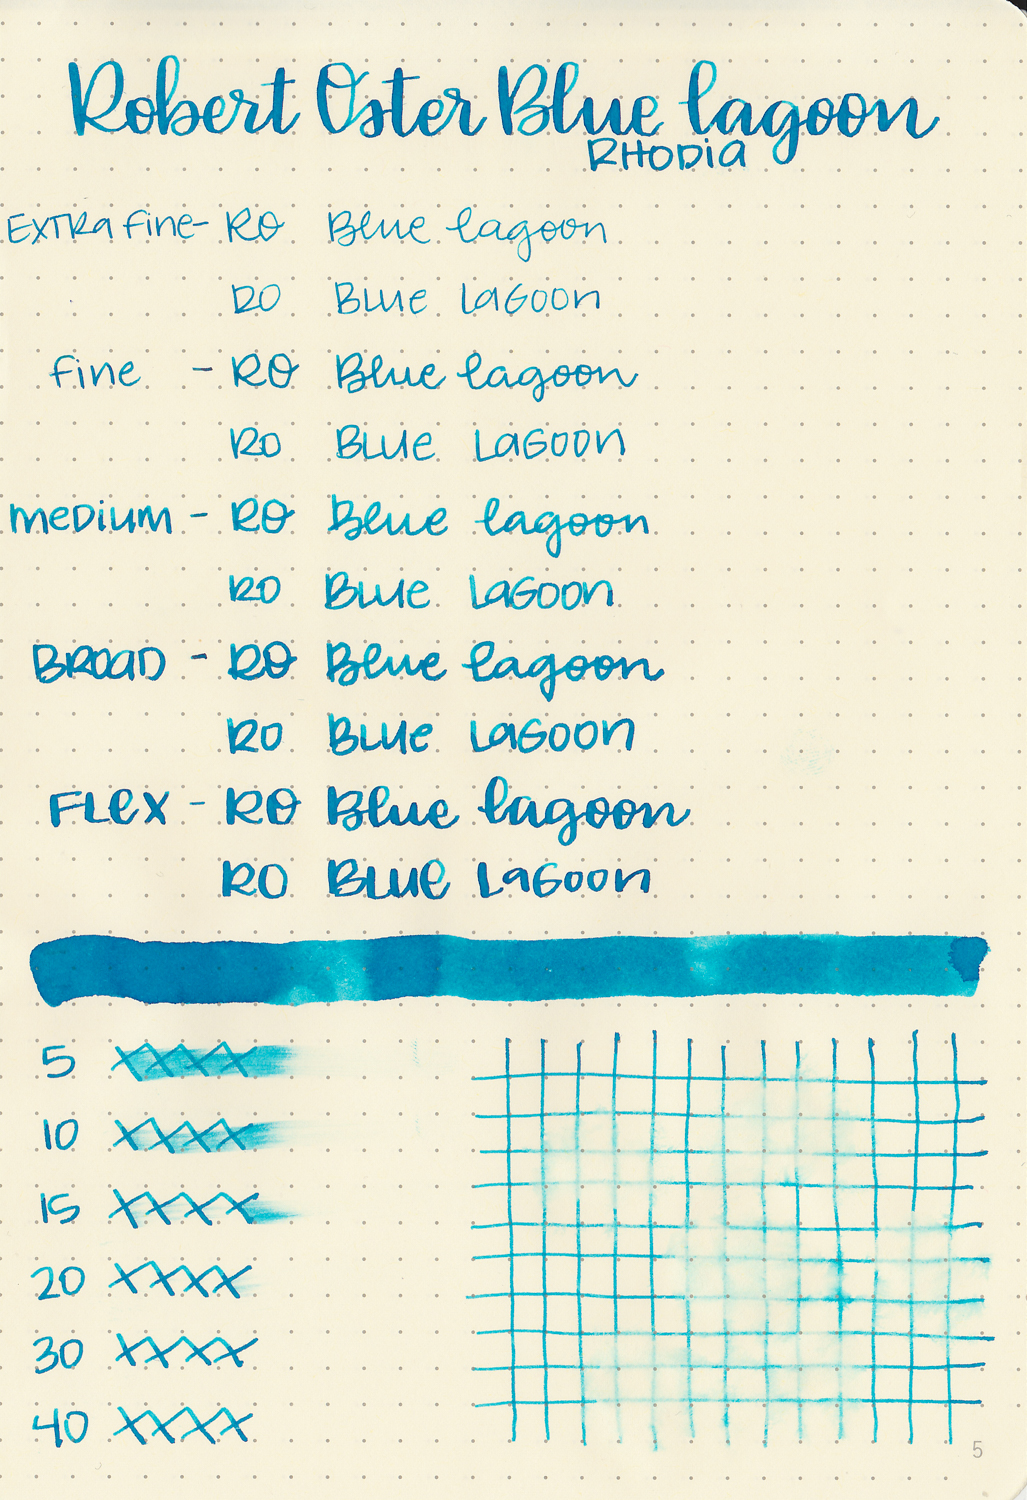 Robert Oster Blue lagoon
RHODIA
EXTRA fine- RO Blue lagoon
RO BLUE LAGOON
fine - RO Blue lagoon
RO BLUE LAGOON
meDium - RO Blue lagoon
RO BLUE LAGOON
BROAD - RO Blue lagoon
RO BLUE LAGOON
FLEX - RO Blue lagoon
RO BLUE LAGOON
5 XXXX
10 XXXX
15 XXXX
20 XXXX
30 XXXX
40 XXXX
5